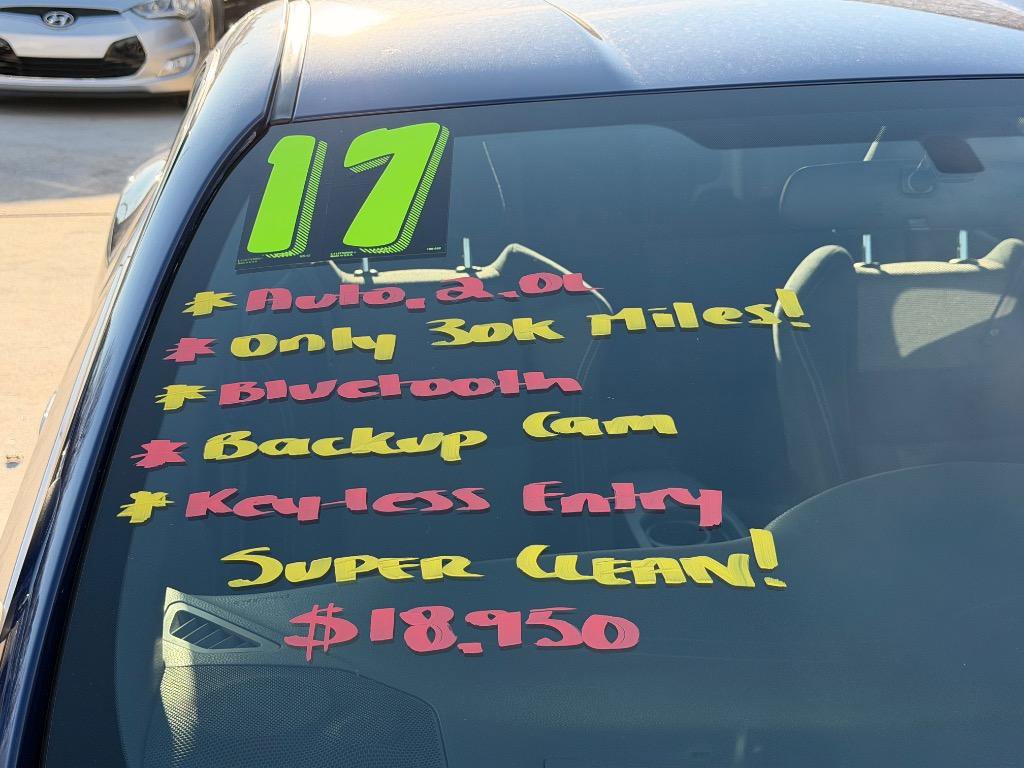 17
* Auto, 2.0L
* Only 30k Miles!
* Bluetooth
* Backup Cam
* Key-less Entry
Super Clean!
$18,950